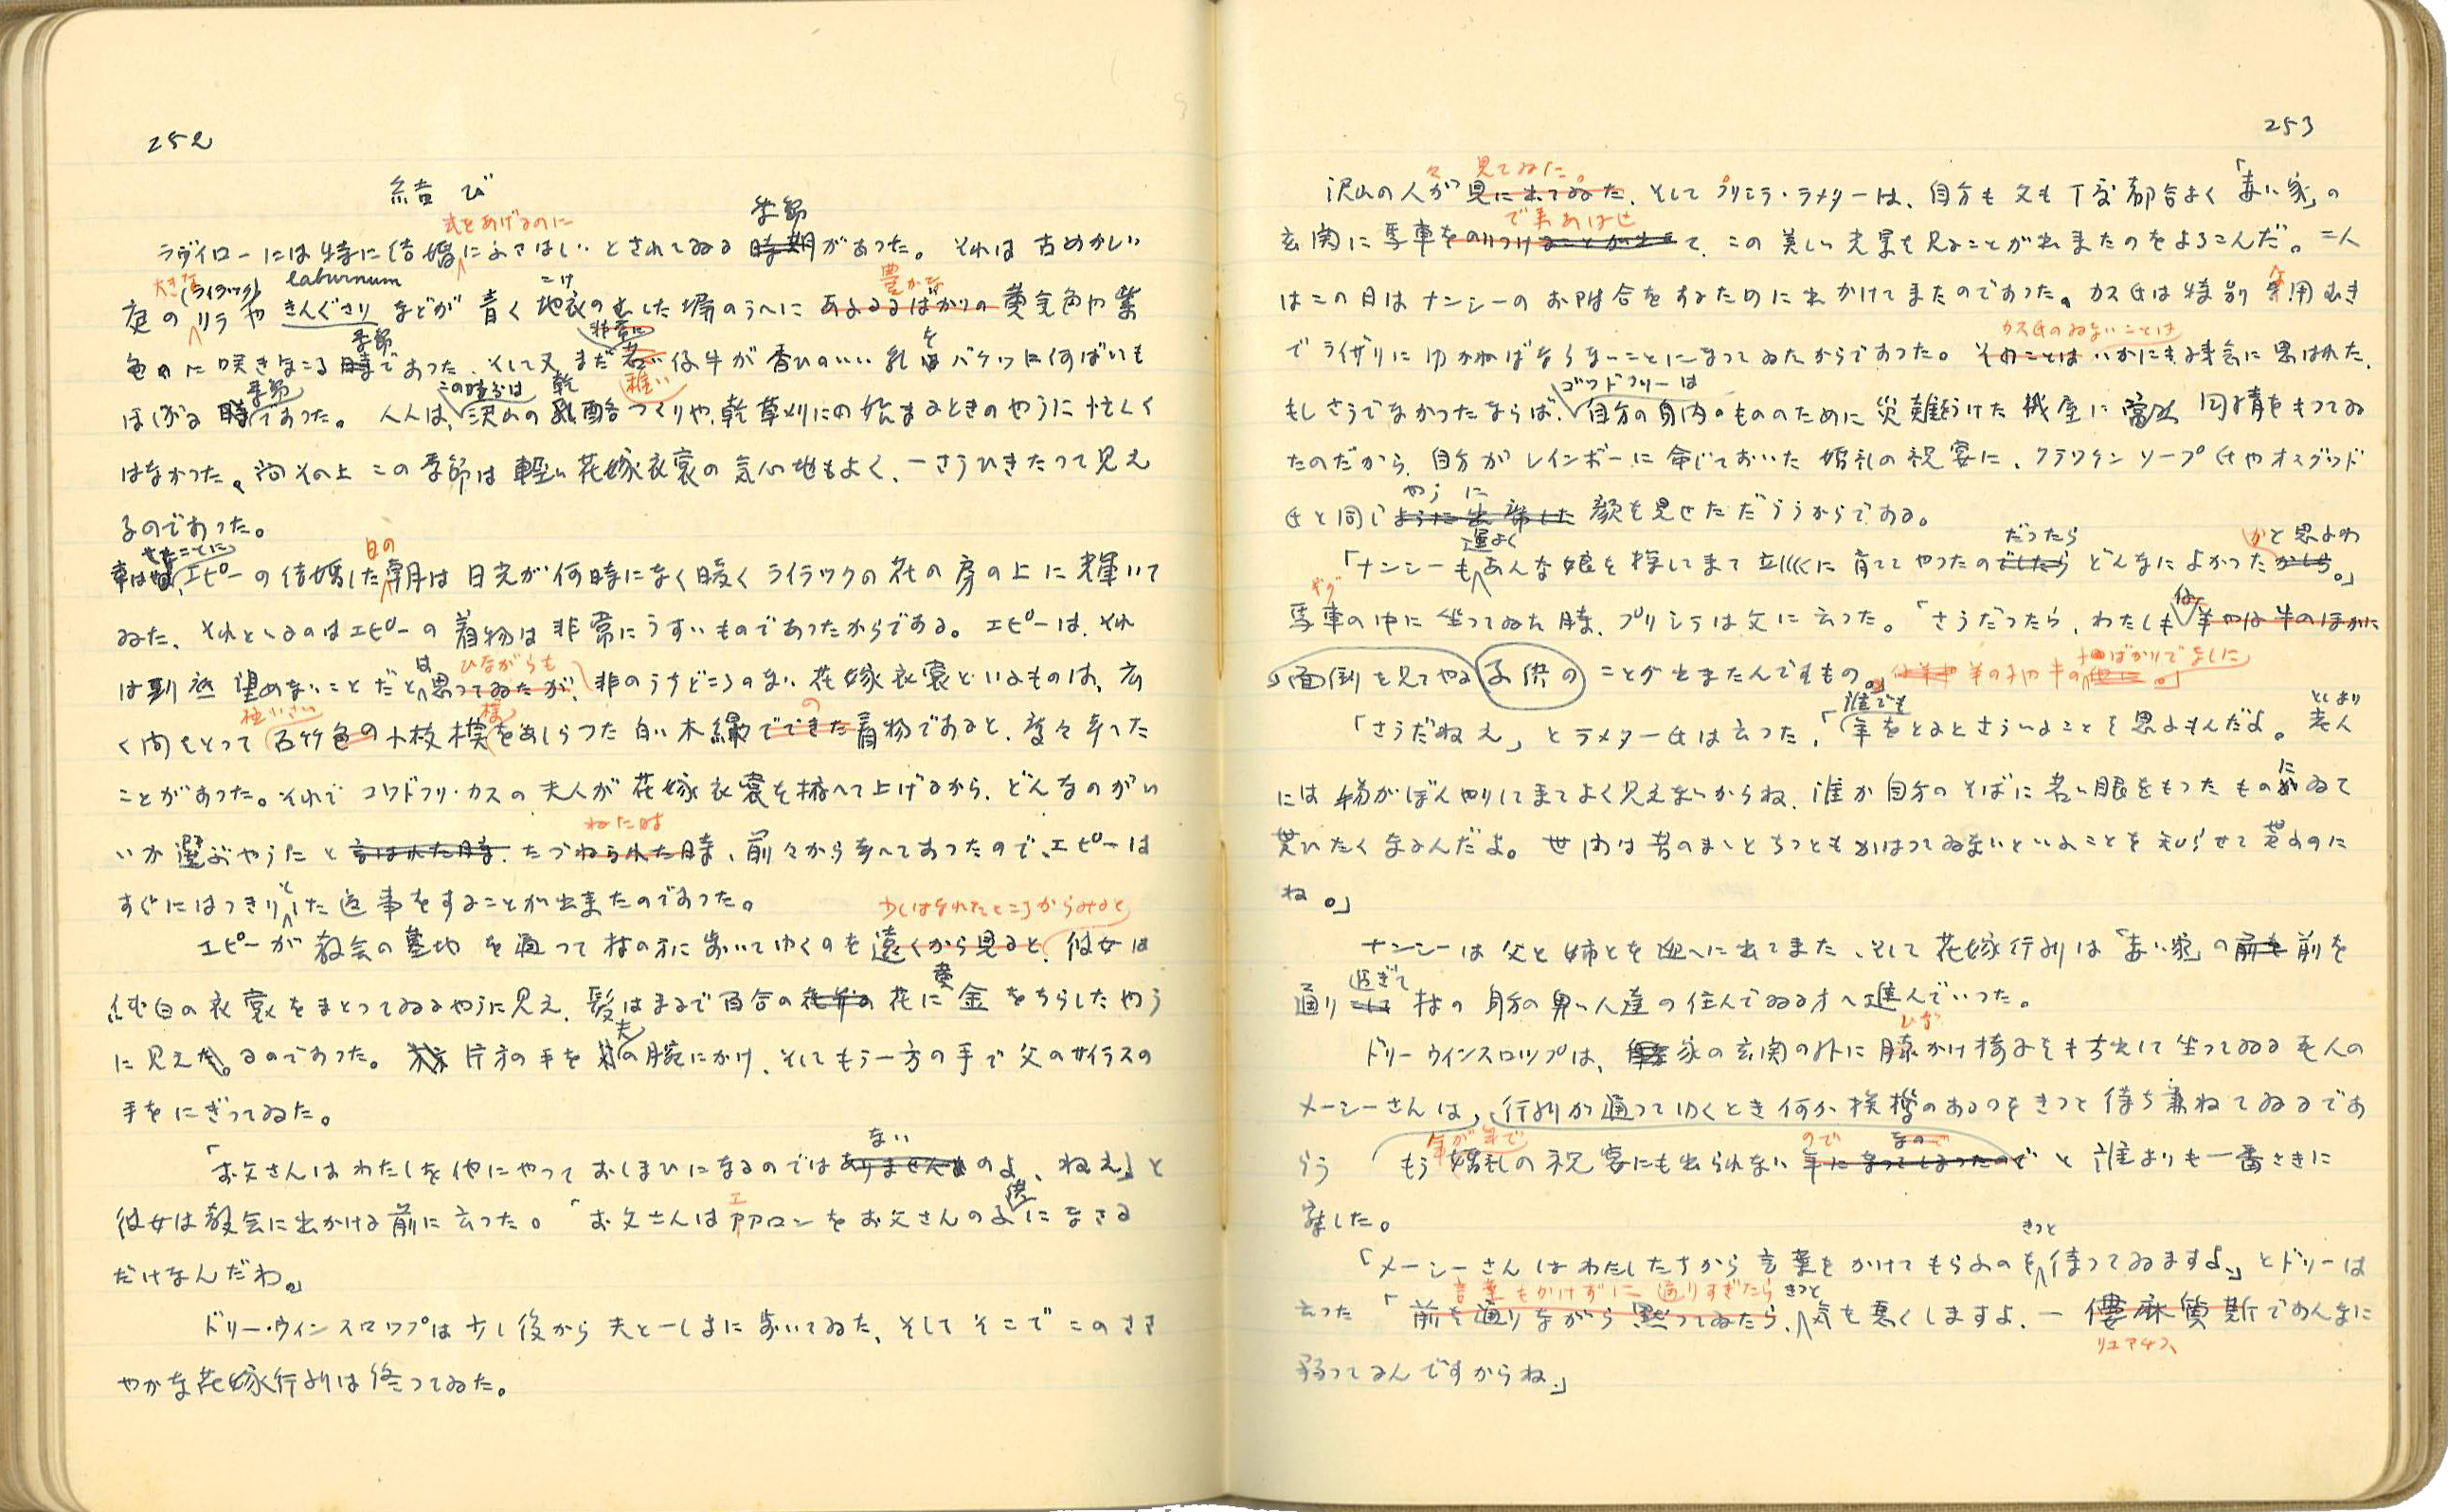 252
結び
式をあげるのに
季節
ラヴイローには特に結婚にふさはしいとされてゐる時期があつた。それは古めかしい
大きな(ライラック) laburnum こけ 豊かな
庭のリラやきんぐさりなどが青く地衣のむした塀のうへにあふるるばかりの黄金色や紫
季節 非常に を
色に咲きほこる時であつた、そして又まだ若い仔牛が香ひのいい乳はバケツに何ばいも
季節 この時分は 乾 稚い
ほしがる時であつた。人人は、沢山の乳酪つくりや、乾草刈りの始まるときのやうに忙しく
はなかつた。尚その上この季節は軽い花嫁衣裳の気心地もよく、一さうひきたつて見え
るのであつた。
せたことに 日の
幸はせ、エピーの結婚した朝は日光が何時になく暖くライラックの花の房の上に輝いて
ゐた、それといふのはエピーの着物は非常にうすいものであつたからである。エピーは、それ
は ひながらも
は到底望めないことだと思つてゐたが、非のうちどころのない花嫁衣裳といふものは、広
桃いろの 様 の
く間をとつて石竹色の小枝模をあしらつた白い木綿でできた着物であると、度々考へた
ことがあつた。それでゴッドフリ・カスの夫人が花嫁衣裳を拵へて上げるから、どんなのがい
ねた時
いか選ぶやうにと言はれた時、たづねられた時、前々から考へてあつたので、エピーは
と
すぐにはつきりした返事をすることが出来たのであつた。
少しはなれたところからみると
エピーが教会の墓地を通つて村の方に歩いてゆくのを遠くから見ると、彼女は
黄
純白の衣裳をまとつてゐるやうに見え、髪はまるで百合の花弁の花に金をちらしたやう
夫
に見えた。るのであつた。片方の手を の腕にかけ、そしてもう一方の手で父のサイラスの
手をにぎつてゐた。
ない
「お父さんはわたしを他にやつておしまひになるのではありませんわのよ、ねえ」と
エ 供
彼女は教会に出かける前に云つた。「お父さんはアアロンをお父さんの子になさる
だけなんだわ。」
ドリー・ウィンスロップは少し後から夫と一しよに歩いてゐた、そしてそこでこのささ
やかな花嫁行列は終つてゐた。
253
々 見てゐた。
沢山の人が見に出てゐた、そしてプリシラ・ラメターは、自分も父も丁度都合よく「赤い家」の
で来あはせ
玄関に馬車をのりつけることが出来て、この美しい光景を見ることが出来たのをよろこんだ。二人
な
はこの日はナンシーのお附合をするために出かけてきたのであつた。カス氏は特別用むき
カス氏のゐないことは
でライザリにゆかねばならないことになつてゐたからであつた。そのことはいかにも残念に思はれた、
ゴッドフリーは
もしさうでなかつたならば、自分の身内のもののために災難をうけた機屋に常に同情をもつてゐ
たのだから、自分がレインボーに命じておいた婚礼の祝宴に、クラッケンソープ氏やオスグッド
やうに
氏と同じように出席した顔を見せただらうからである。
運よく だつたら かと思ふわ
「ナンシーもあんな娘を探してきて立派に育ててやつたのでしたらどんなによかつたかしら。」
ギグ
馬車の中に坐つてゐた時、プリシラは父に云つた。「さうだつたら、わたしも羊や仔牛のほかに
面倒を見てやる子供のことが出来たんですもの。」羊の子や牛の子ばかりでなしに
誰でも としより
「さうだねえ」とラメター氏は云つた、「年をとるとさういふことを思ふもんだよ。老人
に
には物がぼんやりしてきてよく見えないからね、誰か自分のそばに若い眼をもつたものがゐて
貰ひたくなるんだよ。世間は昔のまゝとちつともかはつてゐないといふことを知らせて貰ふのに
ね。」
ナンシーは父と姉とを迎へに出てきた、そして花嫁行列は「赤い家」の前を前を
過ぎて
通りこして村の身分の卑い人達の住んでゐる方へ進んでいつた。
ひぢ
ドリーウインスロップは、家の玄関の外に膝かけ椅子をもち出して坐つてゐる老人の
メーシーさんは、行列が通つてゆくとき何か挨拶のあるのをきつと待ち兼ねてゐるであ
年が年で ので なので
らう もう婚礼の祝宴にも出られない年になつてしまつたのでと誰よりも一番さきに
察した。
きつと
「メーシーさんはわたしたちから言葉をかけてもらふのを待つてゐますよ、」とドリーは
言葉もかけずに通りすぎたら きつと
云つた「前を通りながら黙つてゐたら、気を悪くしますよ、— 僂麻質斯であんなに
リュアチス
弱つてるんですからね。」